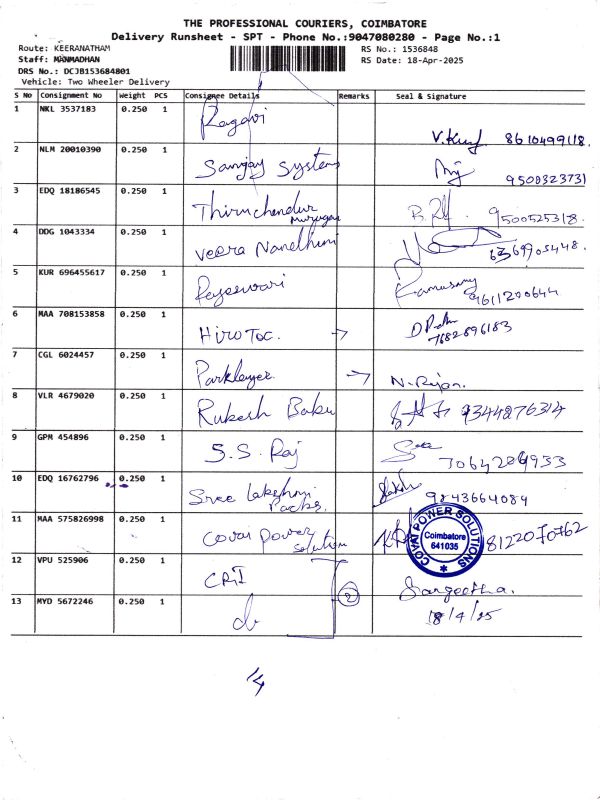 THE PROFESSIONAL COURIERS, COIMBATORE
Delivery Runsheet - SPT - Phone No.:9047080280 - Page No.:1
Route: KEERANATHAM
RS No.: 1536848
Staff: MANMADHAN
RS Date: 18-Apr-2025
DRS No.: DCJB153684801
Vehicle: Two Wheeler Delivery
S No Consignment No Weight PCS Consignee Details Remarks Seal & Signature
1 NKL 3537183 0.250 1 Ragavi
V.Kumf 8610499118.
2 NLM 20010390 0.250 1 Sanjay Systems
9500323731
3 EDQ 18186545 0.250 1 Thiruchendur Murugan
9500525318.
4 DDG 1043334 0.250 1 Veera Nandhini
6369905448.
5 KUR 696455617 0.250 1 Rajeswari Ramasamy
9611200644
6 MAA 708153858 0.250 1 Hiro Toc. →
7682896183
7 CGL 6024457 0.250 1 Parklayer. → N. Rijan.
8 VLR 4679020 0.250 1 Rukesh Babu 9344276314
9 GPM 454896 0.250 1 S.S. Raj
7064204933
10 EDQ 16762796 0.250 1 Sree Lakshmi Packs.
9843664084
11 MAA 575826998 0.250 1 Covai Power Solution
COVAI POWER SOLUTIONS
Coimbatore
641035
8122070762
12 VPU 525906 0.250 1 CRI
2 Sangeetha.
13 MYD 5672246 0.250 1 do
18/4/25
14